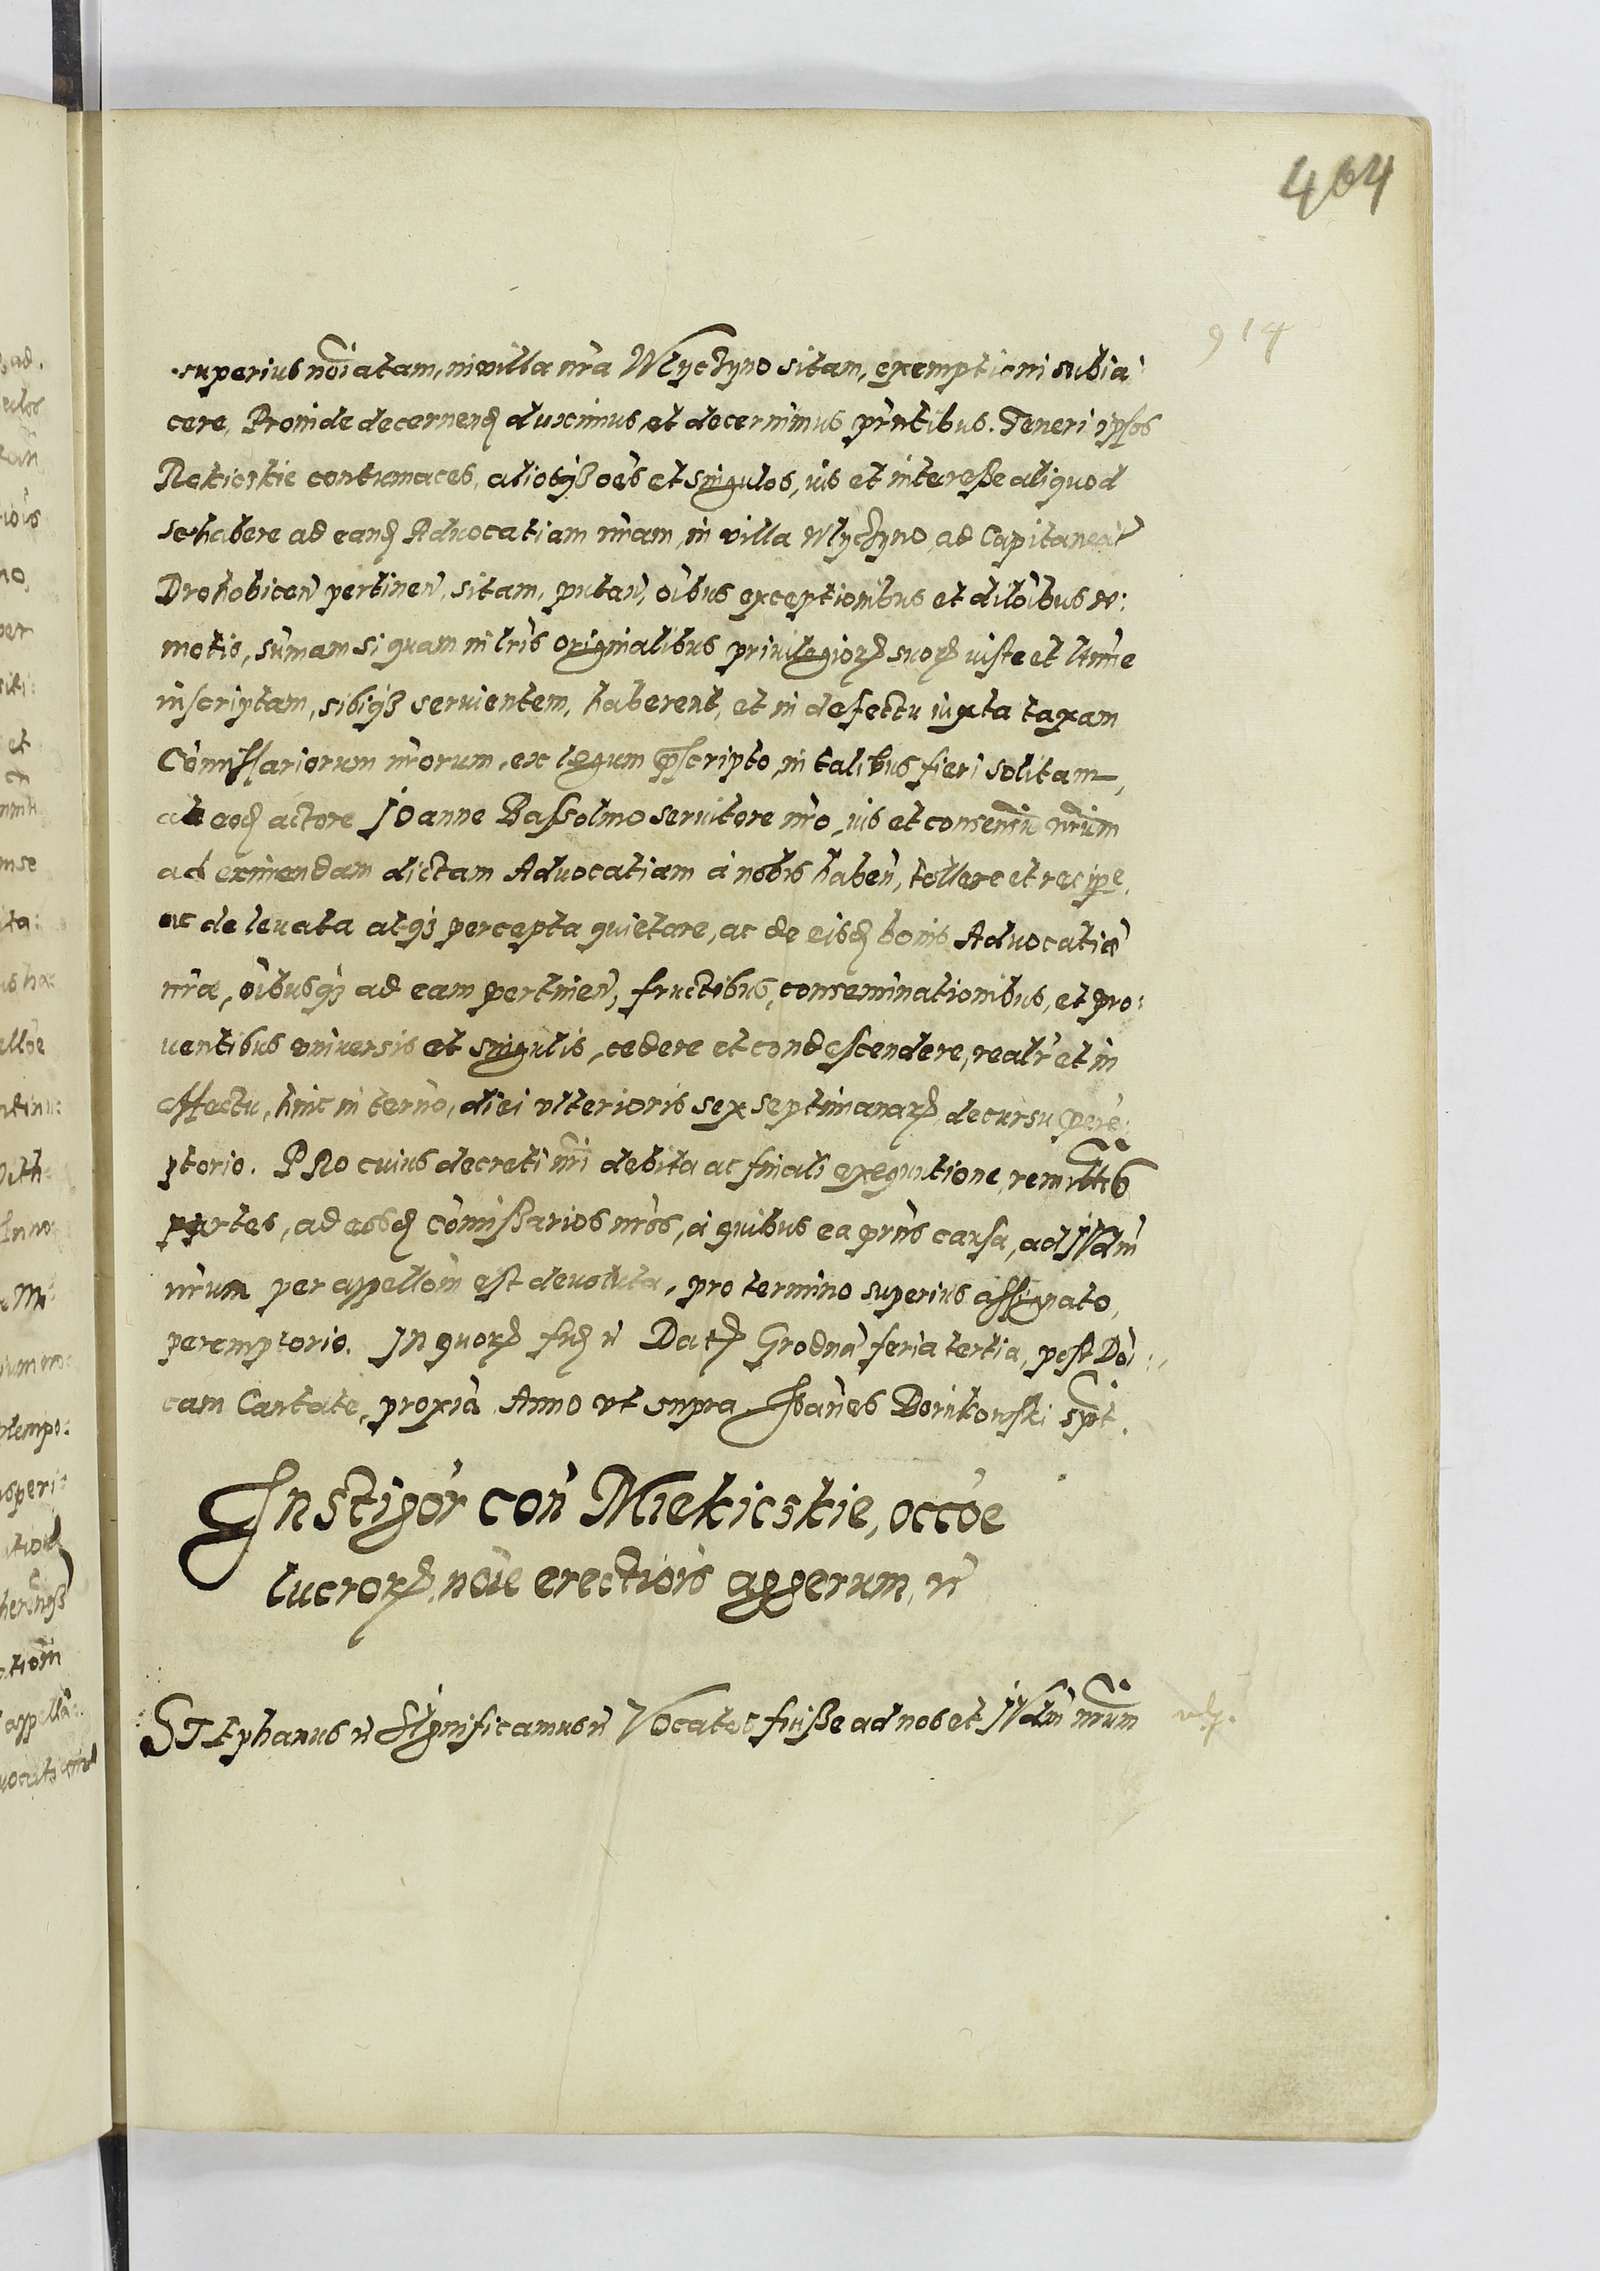 404
914
superius nōīatam, in villa nr̄a Wlychyno sitam, exemptioni subia
cere, Proinde decernend duximus, et decernimus prn̄tibus. Teneri ipsos
contumaces, aliosqȝ oēs et singulos, ius et interesse aliquod
se habere ad eand Aduocatiam nr̄am, in villa Wlychyno, ad Capitaneat
Drohobicen̄ pertinen̄, sitam, putan̄, oībus exceptionibus et dilōibus re:
motis, sum̄am si quam in lr̄is originalibus priuilegioꝝ suoꝝ iuste et ltīme
inscriptam, sibiqȝ seruientem, haberent, et in defectu iuxta taxam
Com̄issariorum nr̄orum, ex legum p̄scripto, in talibus fieri solitam,
ab eod actore Joanne Bassolmo seruitore nr̄o, ius et consensū nr̄um
ad eximendam dictam Aduocatiam a nobis haben̄, tollere et recipe,
ac de leuata atqȝ percepta quietare, ac de eisd bonis Aduocatiæ
nr̄æ, oībusqȝ ad eam pertinen̄, fructibus, conseminationibus, et pro:
uentibus vniuersis et singulis, cedere et condescendere, realr̄ et in
effectu, hinc in tern̄o, diei vlterioris sex septimanaꝝ decursu perē
ptorio. PRo cuius decreti nr̄i debita ac finali exequutione, remittim̄
partes, ad eosd com̄issarios nr̄os, a quibus ea prn̄s causa, ad Jud̄m
nr̄um per appellōm est deuoluta, pro termino superius assignato,
peremptorio. JN quoꝝ fid n̄ Datꝝ Grodnā feria tertia, post Dōi:
cam Cantate, proxīa Anno vt supra Joan̄es Borukowski spt̄.
Instigōr con̄ Miekicskie, occōe
lucroꝝ, nōīe erectiōis aggerum, n̄
STEphanus n̄ SIgnificamus n̄ VOcatos fuisse ad nos et Jud̄m nr̄um